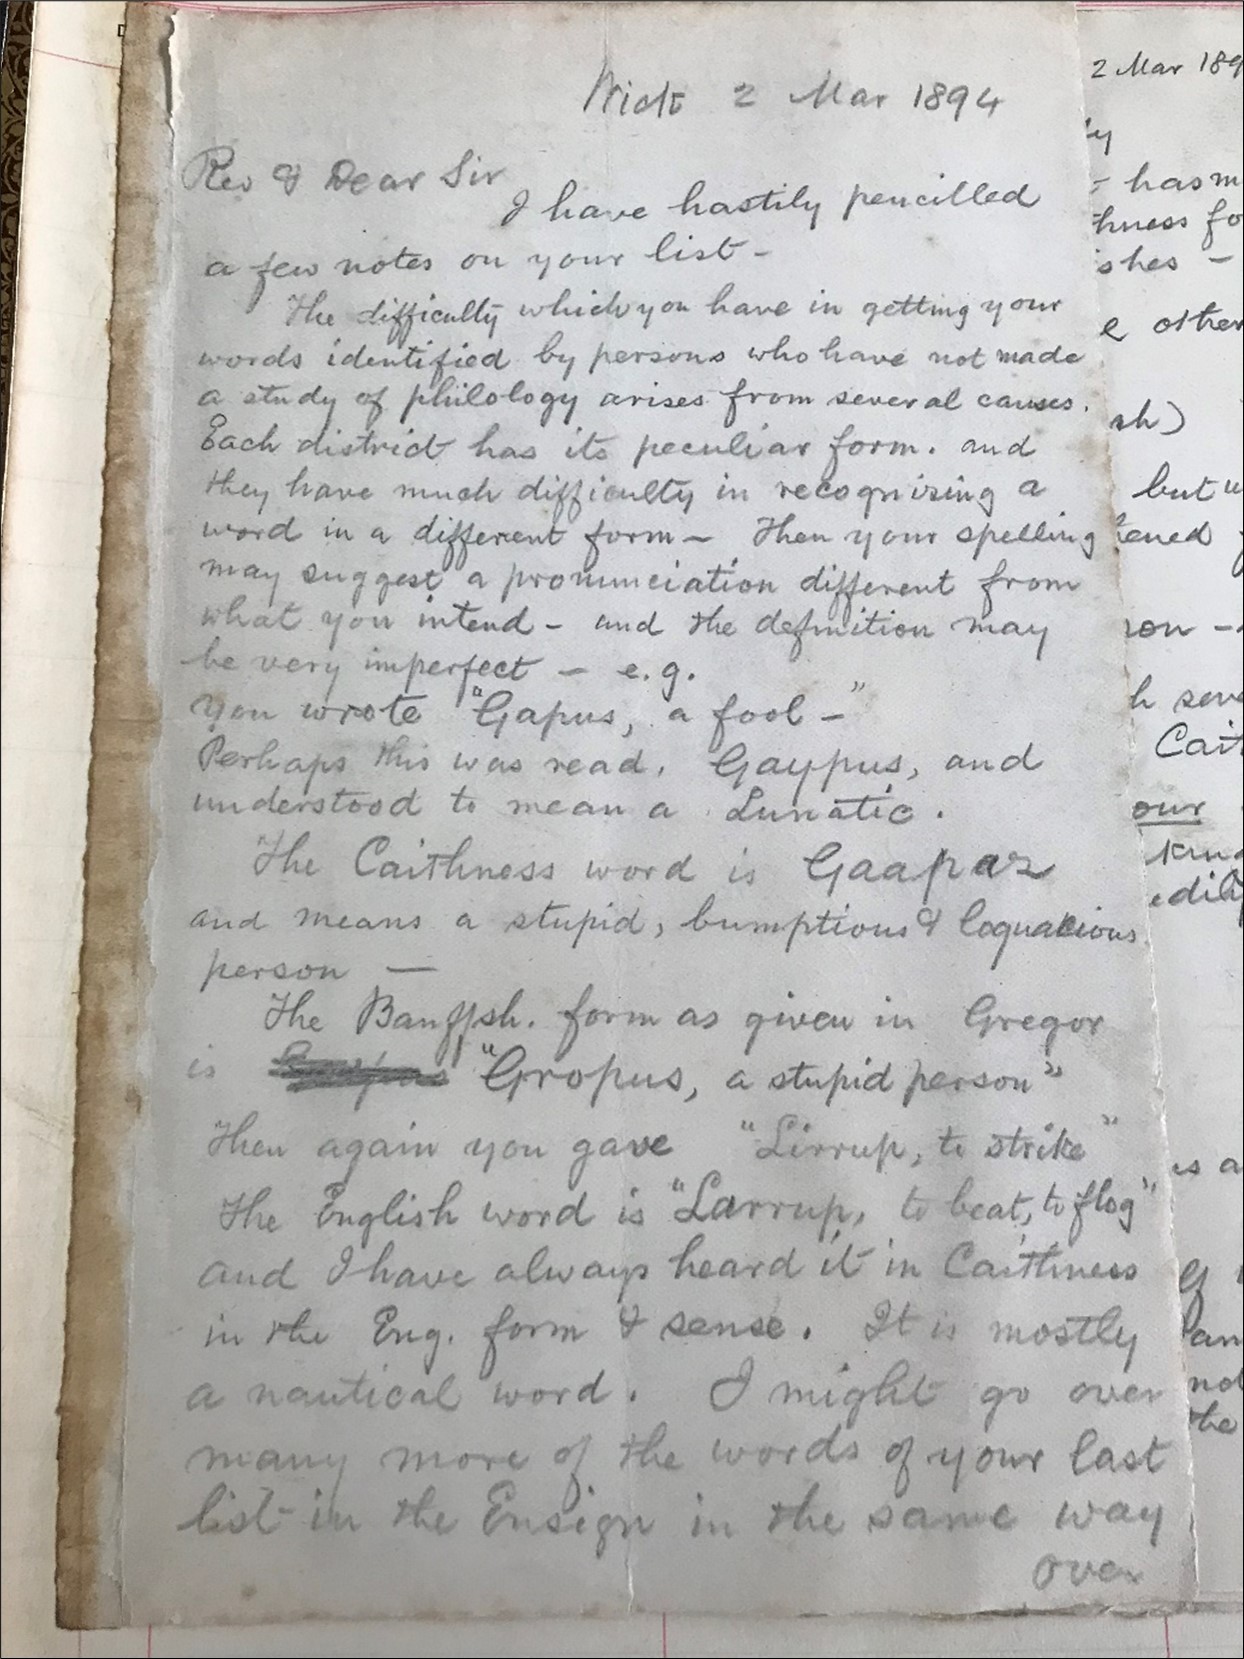 Wick 2 Mar 1894
Rev & Dear Sir
I have hastily pencilled
a few notes on your list -
The difficulty which you have in getting your
words identified by persons who have not made
a study of philology arises from several causes.
Each district has its peculiar form. and
they have much difficulty in recognising a
word in a different form - Then your spelling
may suggest a pronunciation different from
what you intend - and the definition may
be very imperfect - e.g.
You wrote "Gapus, a fool -"
Perhaps this was read. Gaypus, and
understood to mean a Lunatic.
The Caithness word is Gaapas
and means a stupid, bumptious & loquacious
person —
The Banffsh. form as given in Gregor
is "Gropus, a stupid person"
Then again you gave "Lirrup, to strike"
The English word is "Larrup, to beat, to flog"
and I have always heard it in Caithness
in the Eng. form & sense. It is mostly
a nautical word. I might go over
many more of the words of your last
list in the Ensign in the same way
over
2 Mar 189
has m
thness fo
shes -
e other
sh)
but
tened
son -
h seve
Cait
our
edit
is a
an
not
the